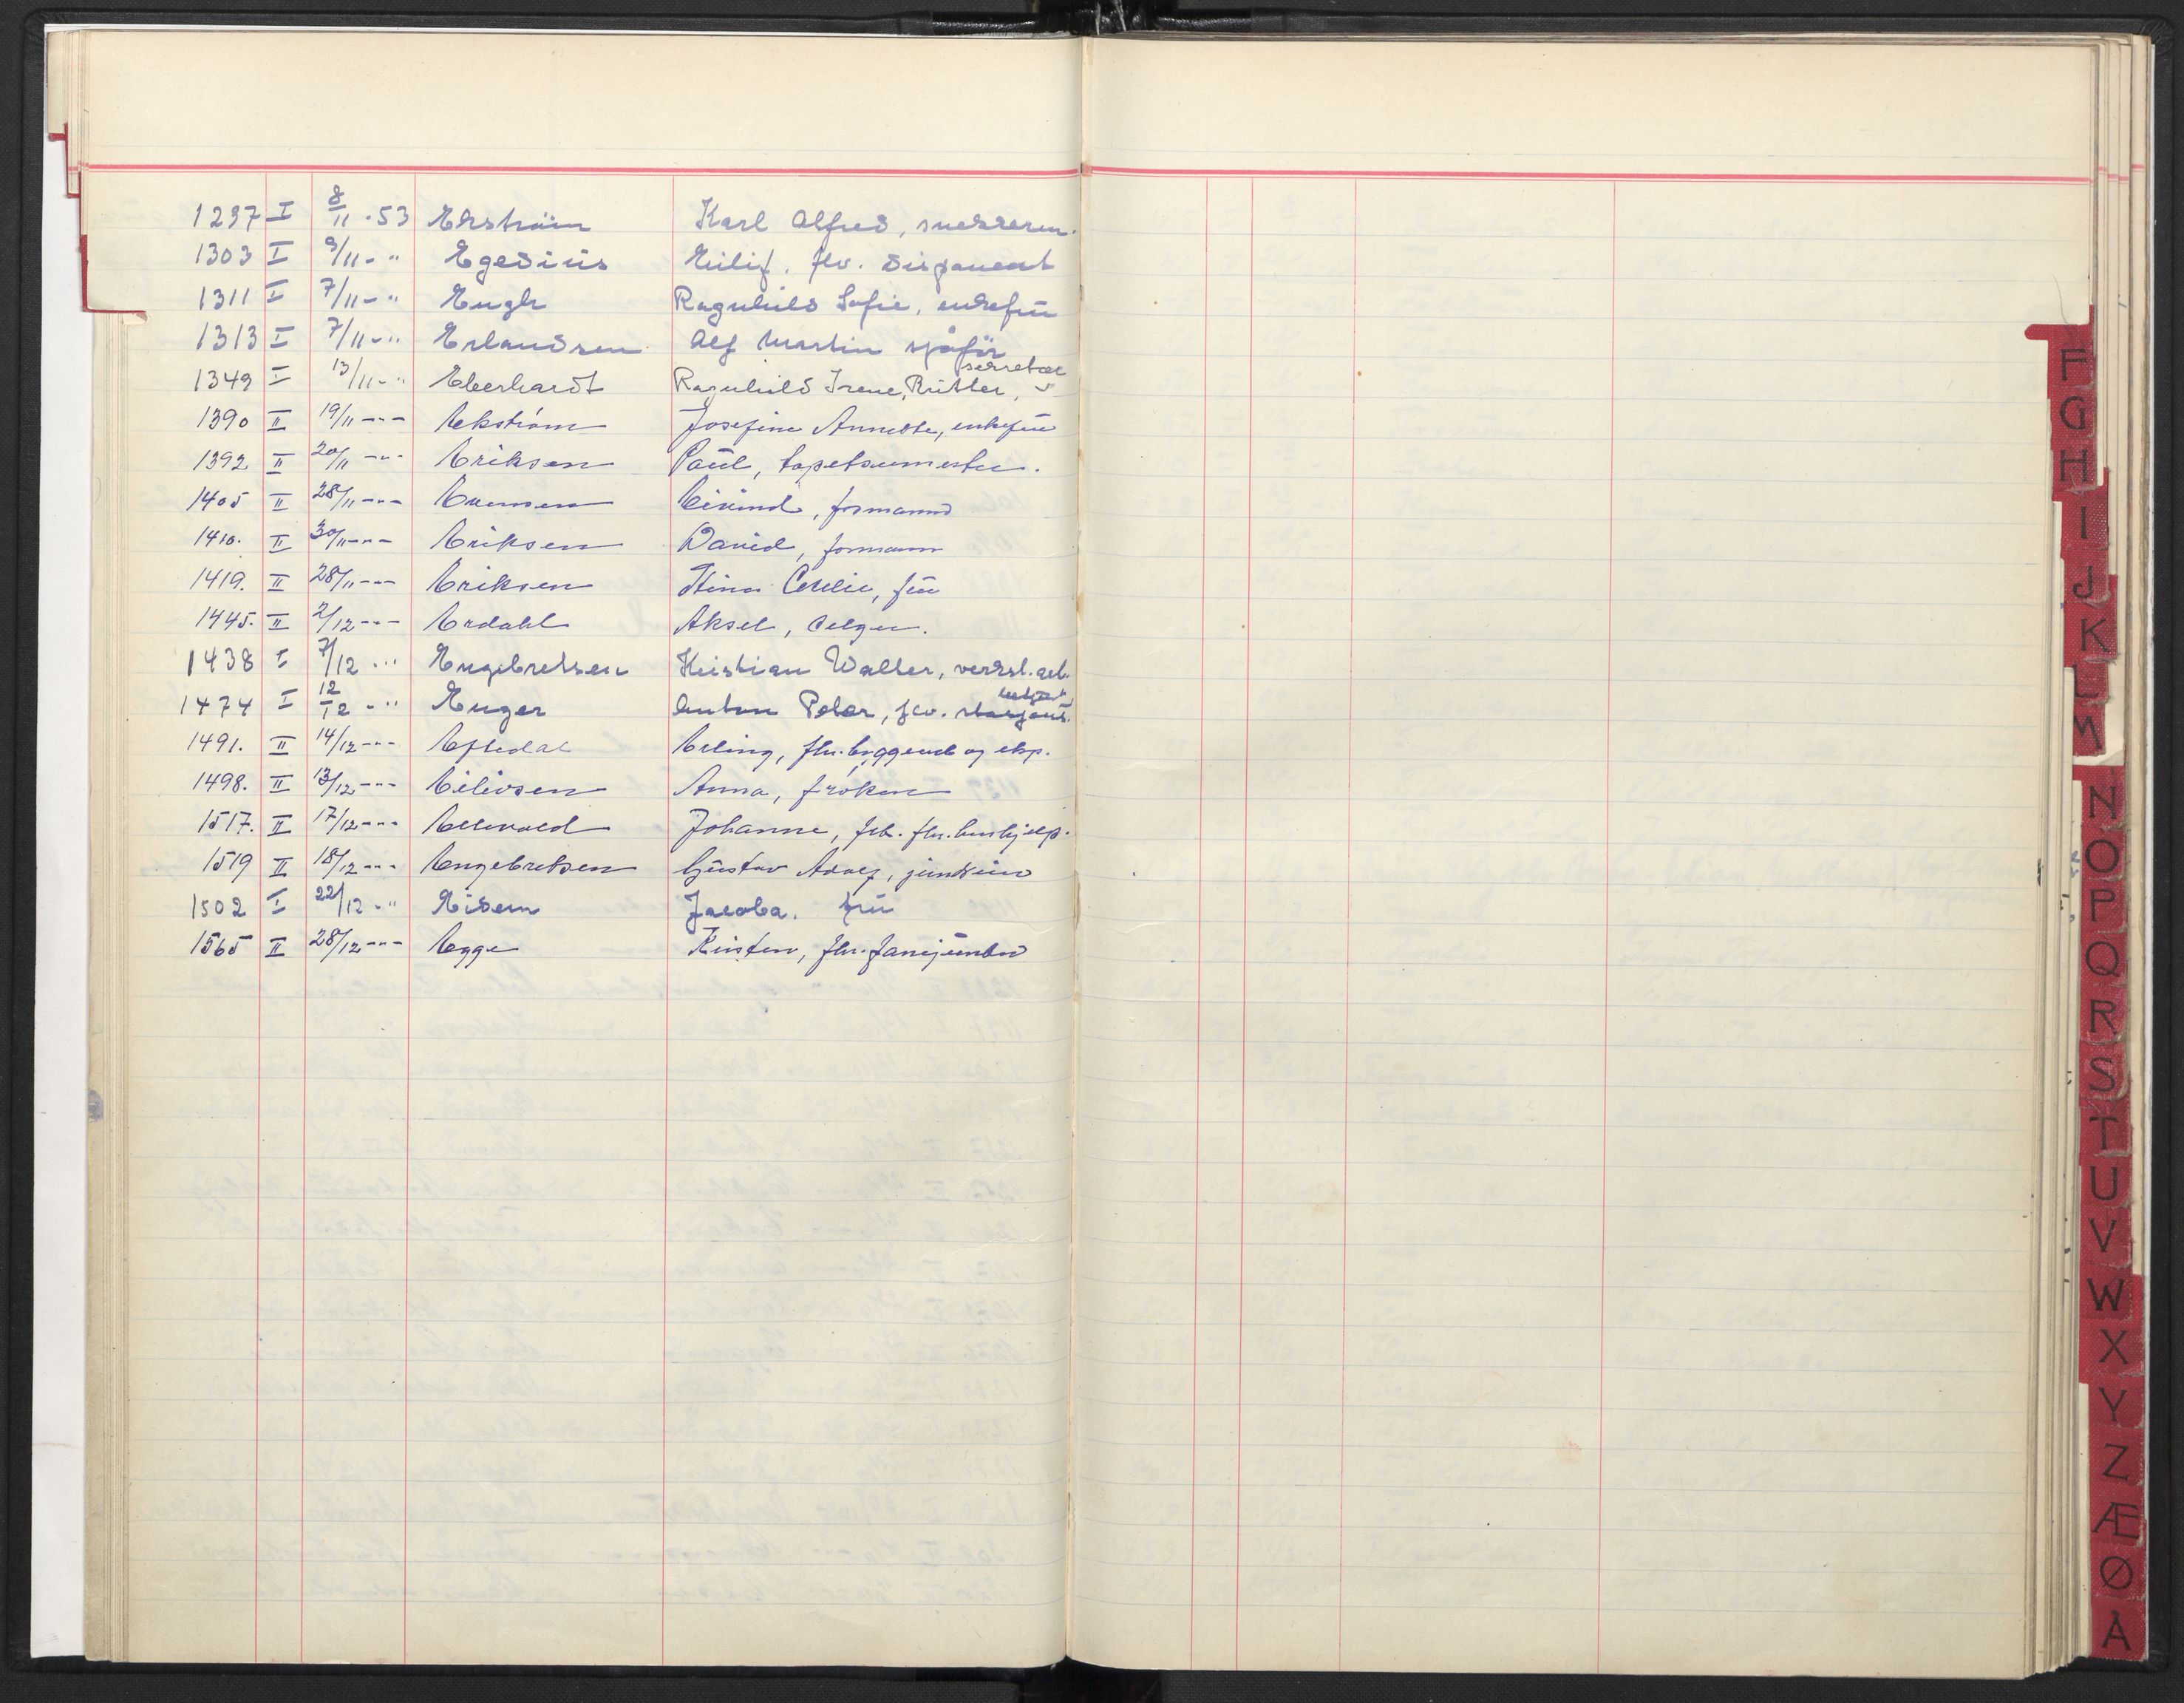 1297 I 8/11 .53 Ekström Karl Alfred, snekkerm.
1303 I 9/11 - " Egedius Eilif, flv. disponent
1311 I 7/11 - " Engh Ragnhild Sofie, enkefru
1313 I 7/11 - " Erlandsen Alf Martin sjåfør
1349 I 13/11 - " Eberhardt Ragnhild Irene, sekretær
1390 II 19/11 - " - Ekström Josefine Annette, enkefru
1392 II 20/11 - " - Eriksen Paul, tapetsermester.
1405 II 28/11 - " - Evensen Eivind, formann
1410. II 30/11 - " - Eriksen David, formann
1419. II 28/11 - " - Eriksen Stina Cecilie, fru
1445. II 2/12 - " - Erdahl Aksel, selger.
1438 I 7/12 - " Engebretsen Kristian Walter, verkst.arb.
1474 I 12/12 - " Enger Anton Peder, flv.
1491. II 14/12 - " - Eftedal Erling, flv. byggeml og eksp.
1498. II 13/12 - " - Eilivsen Anna, frøken
1517. II 17/12 - " - Ellevold Johanne, frk. flv. hushjelp.
1519 II 18/12 - " - Engebretsen Gustav Adolf,
1502 I 22/12 - " Eidem Jacoba. fru
1565 II 28/12 - " - Egge Kristen, flv.
F
G
H
I
J
K
L
M
N
O
P
Q
R
S
T
U
V
W
X
Y
Z
Æ
Ø
Å